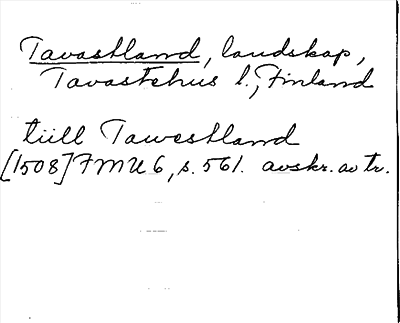 Tavastland, landskap,
Tavastehus l., Finland
tiill Tawestland
[1508] FMU 6, s. 561. avskr. av tr.